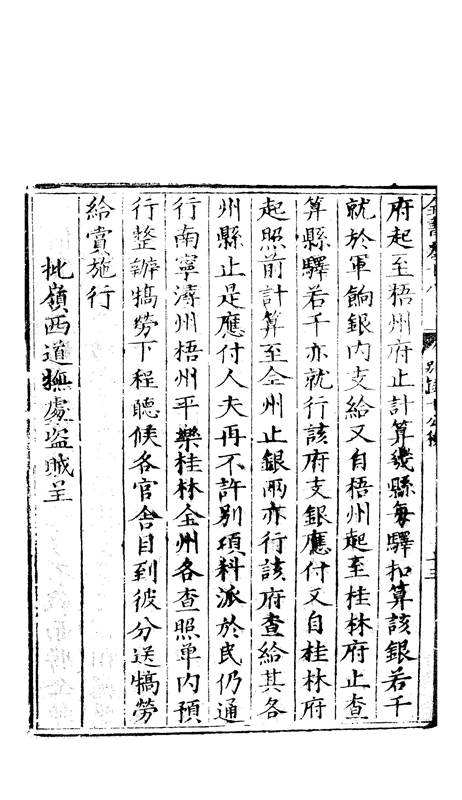 府起至梧州府止計算幾縣每驛扣算該銀若干
就於軍餉銀內支給又自梧州起至桂林府止查
算縣驛若干亦就行該府支銀應付又自桂林府
起照前計算至全州止銀兩亦行該府查給其各
州縣止是應付人夫再不許別項科派於民仍通
行南寧潯州梧州平樂桂林全州各查照單內預
行整辦犒勞下程聽候各官舍目到彼分送犒勞
給賞施行
批嶺西道撫處盜賊呈